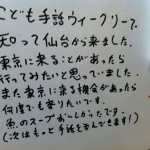 こども手話ウィークリーで、
知って仙台から来ました。
東京に来ることがあったら
行ってみたいと思っていました。
また東京に来る機会があったら
何度でも寄りたいです。
魚のスープおいしかったです。
(次はもっと手話を学んできます!)